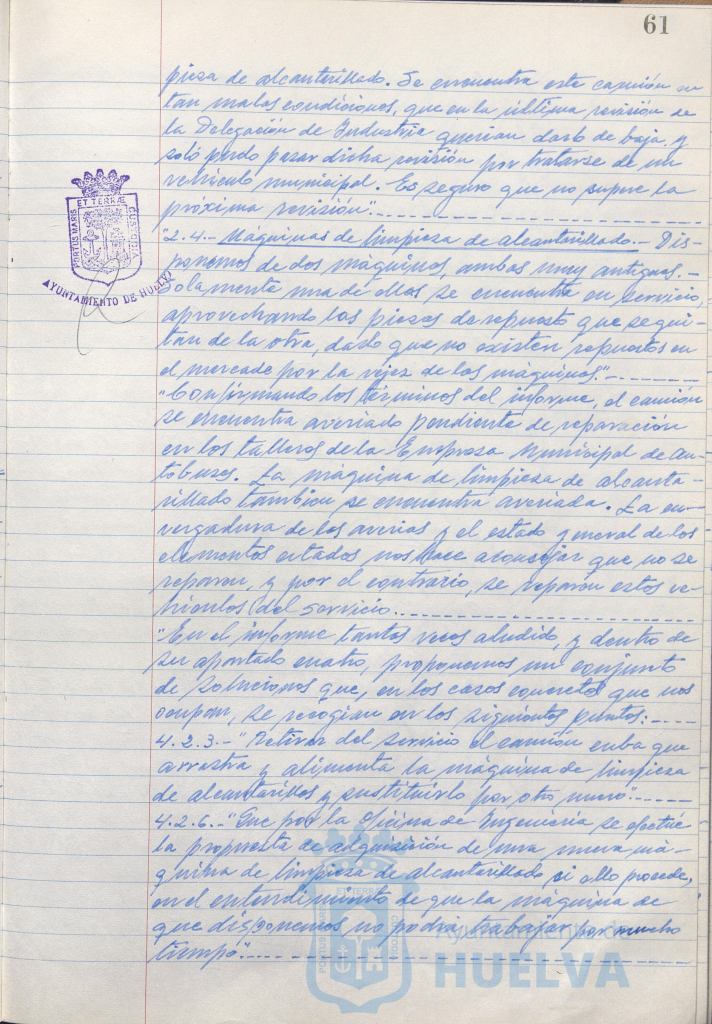 61
pieza de alcantarillado. Se encuentra este camión en
tan malas condiciones, que en la última revisión de
la Delegación de Industria querían darlo de baja, y
solo pudo pasar dicha revisión por tratarse de un
vehículo municipal. Es seguro que no supere la
próxima revisión".
"2.4.- Máquinas de limpieza de alcantarillado.- Dis-
ponemos de dos máquinas, ambas muy antiguas.-
Solamente una de ellas se encuentra en servicio,
aprovechando las piezas de repuesto que se qui-
tan de la otra, dado que no existen repuestos en
el mercado por la vejez de las máquinas."
"Confirmando los términos del informe, el camión
se encuentra averiado pendiente de reparación
en los talleres de la Empresa Municipal de Au-
tobuses. La máquina de limpieza de alcanta-
rillado tambien se encuentra averiada. La en-
vergadura de las averias y el estado general de los
elementos citados nos hace aconsejar que no se
reparen, y por el contrario, se separen estos ve-
hículos del servicio.
"En el informe tantas veces aludido, y dentro de
su apartado cuatro, proponemos un conjunto
de soluciones que, en los casos concretos que nos
ocupan, se recogian en los siguientes puntos:
4.2.3.- "Retirar del servicio el camión cuba que
arrastra y alimenta la máquina de limpieza
de alcantarillas y sustituirlo por otro nuevo"
4.2.6.- "Que por la Oficina de Ingeniería se efectúe
la propuesta de adquisición de una nueva má-
quina de limpieza de alcantarillado si ello procede,
en el entendimiento de que la máquina de
que disponemos no podrá trabajar por mucho
tiempo".
PORTUS MARIS ET TERRAE CUSTODIA
AYUNTAMIENTO DE HUELVA
PORTUS MARIS ET TERRAE CUSTODIA
Ayuntamiento de
HUELVA